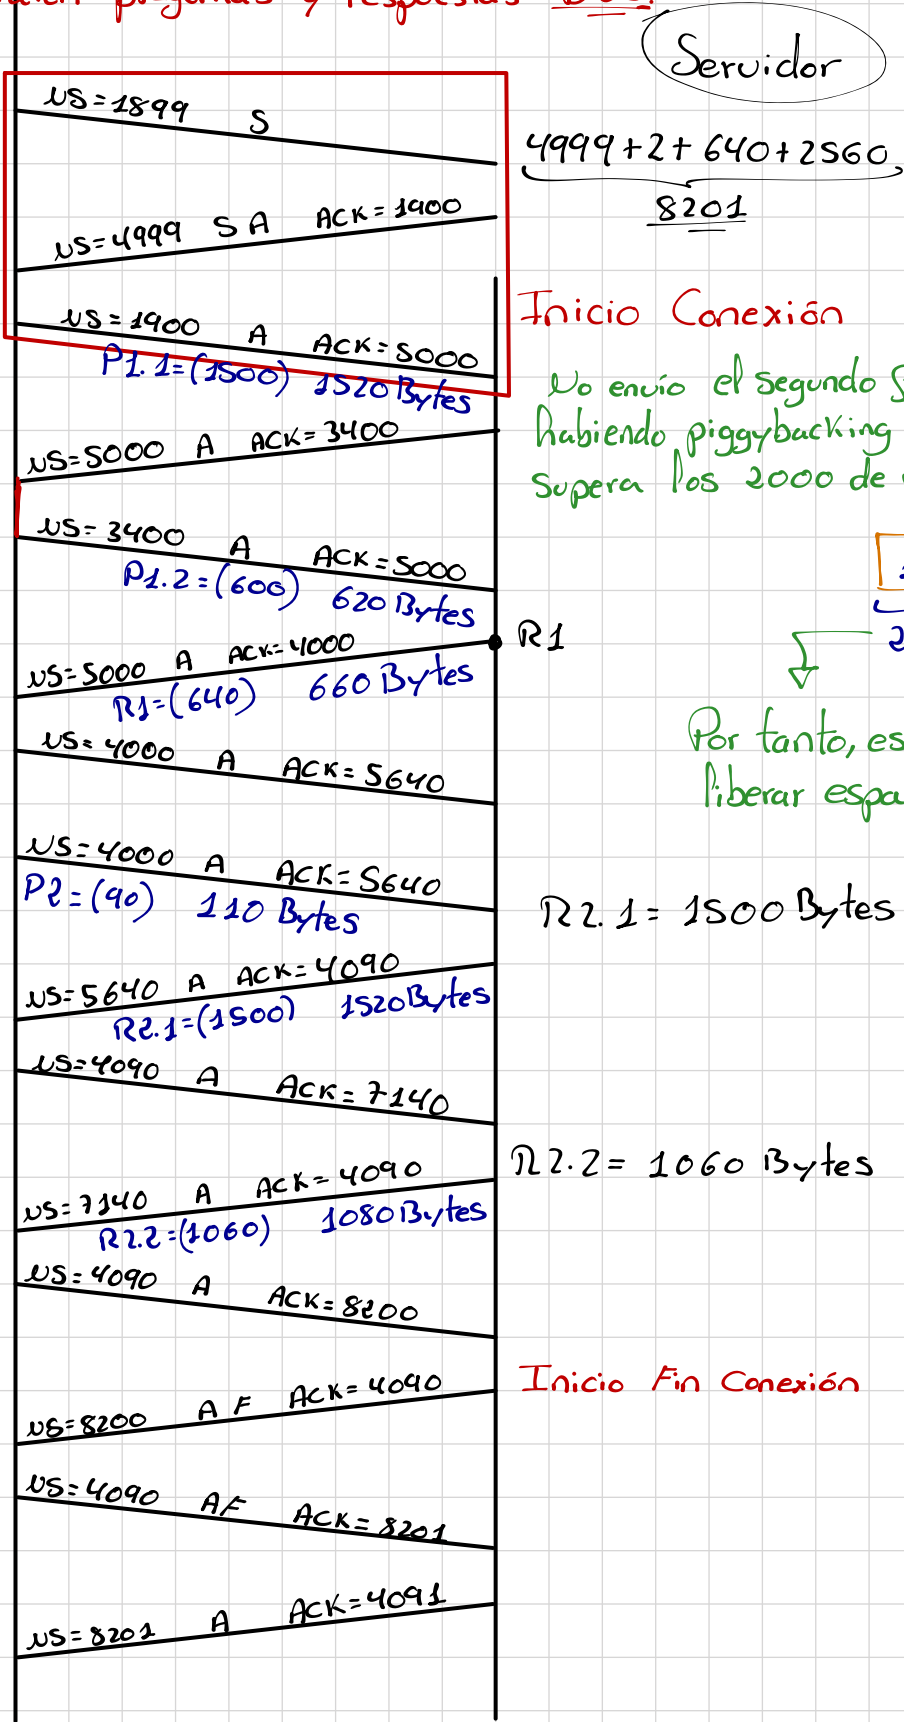 y respuestas
Servidor
NS=1899 S
4999+2+640+2560
8201
NS=4999 S A ACK=1900
Inicio Conexión
NS=1900 A ACK=5000
P1.1=(1500) 1520 Bytes
No envío el segundo
habiendo piggybacking
supera los 2000 de
NS=5000 A ACK=3400
NS=3400 A ACK=5000
P1.2=(600) 620 Bytes
R1
NS=5000 A ACK=4000
R1=(640) 660 Bytes
NS=4000 A ACK=5640
Por tanto, es
liberar espa
NS=4000 A ACK=5640
P2=(90) 110 Bytes
R2.1= 1500 Bytes
NS=5640 A ACK=4090
R2.1=(1500) 1520Bytes
NS=4090 A ACK=7140
R2.2= 1060 Bytes
NS=7140 A ACK=4090
R2.2=(1060) 1080Bytes
NS=4090 A ACK=8200
Inicio Fin Conexión
NS=8200 A F ACK=4090
NS=4090 AF ACK=8201
NS=8201 A ACK=4091